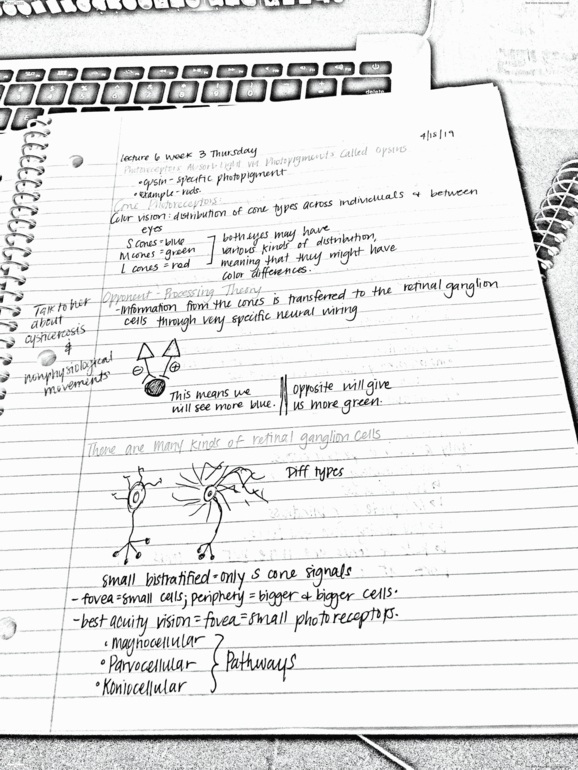 4/18/19
lecture 6 week 3 Thursday
Photoreceptors Absorb Light via Photopigments Called Opsins
•opsin - specific photopigment
•example - rods.
Cone Photoreceptors:
Color vision: distribution of cone types across individuals & between
eyes
S cones = blue
M cones = green
L cones = red
both eyes may have
various kinds of distribution,
meaning that they might have
color differences.
Opponent-Processing Theory
-Information from the cones is transferred to the retinal ganglion
cells through very specific neural wiring
Talk to her
about
cysticercosis
&
nonphysiological
movements
⊖ ⊕
This means we
will see more blue.
opposite will give
us more green.
There are many kinds of retinal ganglion cells
Diff types
small bistratified = only S cone signals
- fovea = small cells; periphery = bigger & bigger cells.
- best acuity vision = fovea = small photoreceptors.
• Magnocellular
• Parvocellular
• Koniocellular
Pathways
delete